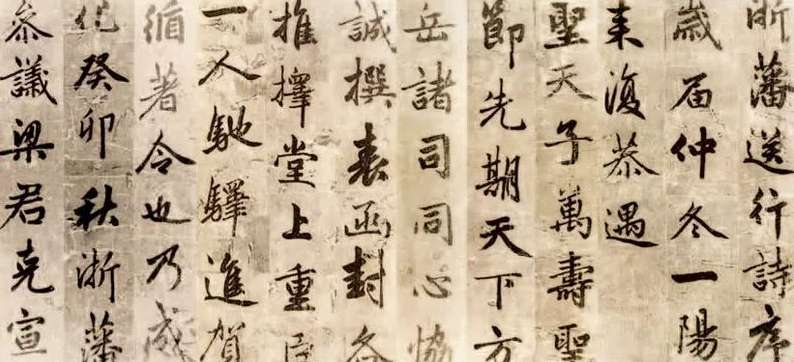 浙藩送行詩序
歲屆仲冬一陽
来復恭遇
聖天子萬壽聖
節先期天下方
岳諸司同心協
誠撰表函封各
推擇堂上重臣
一人馳驛進賀
循著令也乃成
化癸卯秋浙藩
参議梁君克宣